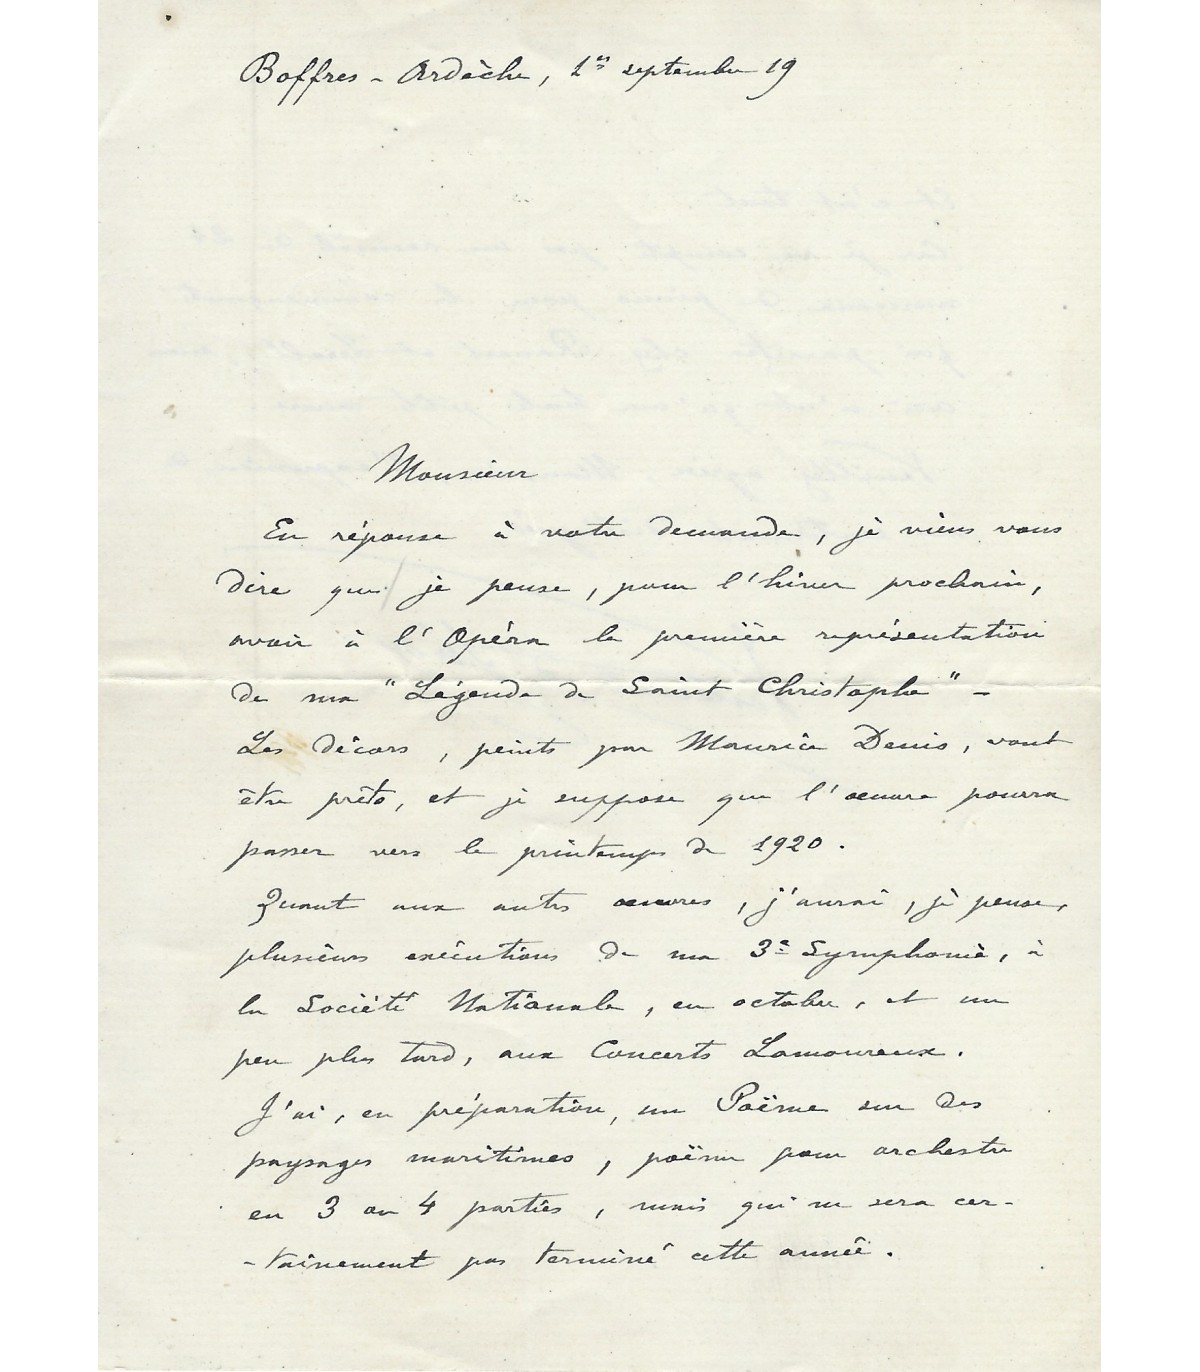 Boffres - Ardèche, 1er septembre 19
Monsieur
En réponse à votre demande, je viens vous
dire que je pense, pour l'hiver prochain,
avoir à l'Opéra la première représentation
de ma "Légende de Saint Christophe" -
Les décors, peints par Maurice Denis, vont
être prêts, et je suppose que l'œuvre pourra
passer vers le printemps de 1920.
Quant aux autres œuvres, j'aurai, je pense,
plusieurs exécutions de ma 3e Symphonie, à
la Société Nationale, en octobre, et un
peu plus tard, aux Concerts Lamoureux.
J'ai, en préparation, un Poëme sur des
paysages maritimes, poëme pour orchestre
en 3 ou 4 parties, mais qui ne sera cer-
-tainement pas terminé cette année.